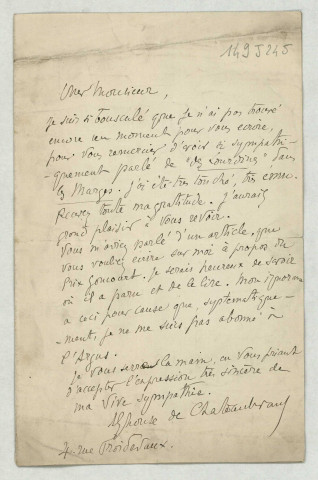 149 J 245
Cher Monsieur,
Je suis si bousculé que je n'ai pas trouvé
encore un moment pour vous écrire,
pour vous remercier d'avoir si sympathi-
-quement parlé de "des Lourdines" dans
les Marges. J'ai été très touché, très ému.
Recevez toute ma gratitude. J'aurais
grand plaisir à vous revoir.
Vous m'aviez parlé d'un article que
vous vouliez écrire sur moi à propos du
Prix Goncourt. Je serais heureux de savoir
où il a paru et de le lire. Mon ignorance
a ceci pour cause que, systématique-
-ment, je ne me suis pas abonné à
l'Argus.
Je vous serre la main, en vous priant
d'accepter l'expression très sincère de
ma vive sympathie.
Alphonse de Chateaubriant
4 rue Froidevaux.